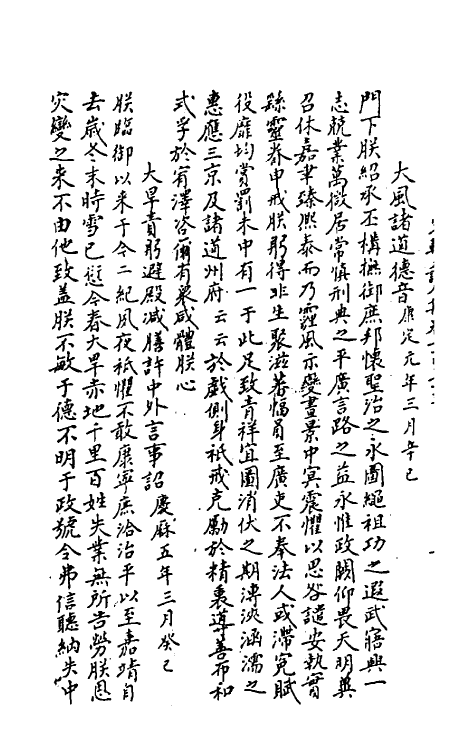 大風諸道德音康定元年三月辛巳
門下朕紹承丕構撫御庶邦懷聖治之永圖繩祖功之遐武寤興一
志兢業萬微居常慎刑典之平廣言路之益永惟政闕仰畏天明冀
召休嘉聿臻熙泰而乃霾風示變晝景中冥震懼以思咎譴安執實
繇靈眷申戒朕躬得非生聚滋蕃幅員至廣吏不奉法人或滯冤賦
役靡均賞罰未中有一于此足致眚祥宜圖消伏之期溥浹涵濡之
惠應三京及諸道州府云云於戲側身祗戒克勵於精衷導善布和
式孚於宥澤咨爾有衆咸體朕心
大旱責躬避殿減膳許中外言事詔慶厤五年三月癸巳
朕臨御以来于今二紀夙夜祗懼不敢康寧庶洽治平以至嘉靖自
去歲冬末時雪已愆今春大旱赤地千里百姓失業無所告勞朕思
灾變之来不由他致盖朕不敏于德不明于政號令弗信聽納失中